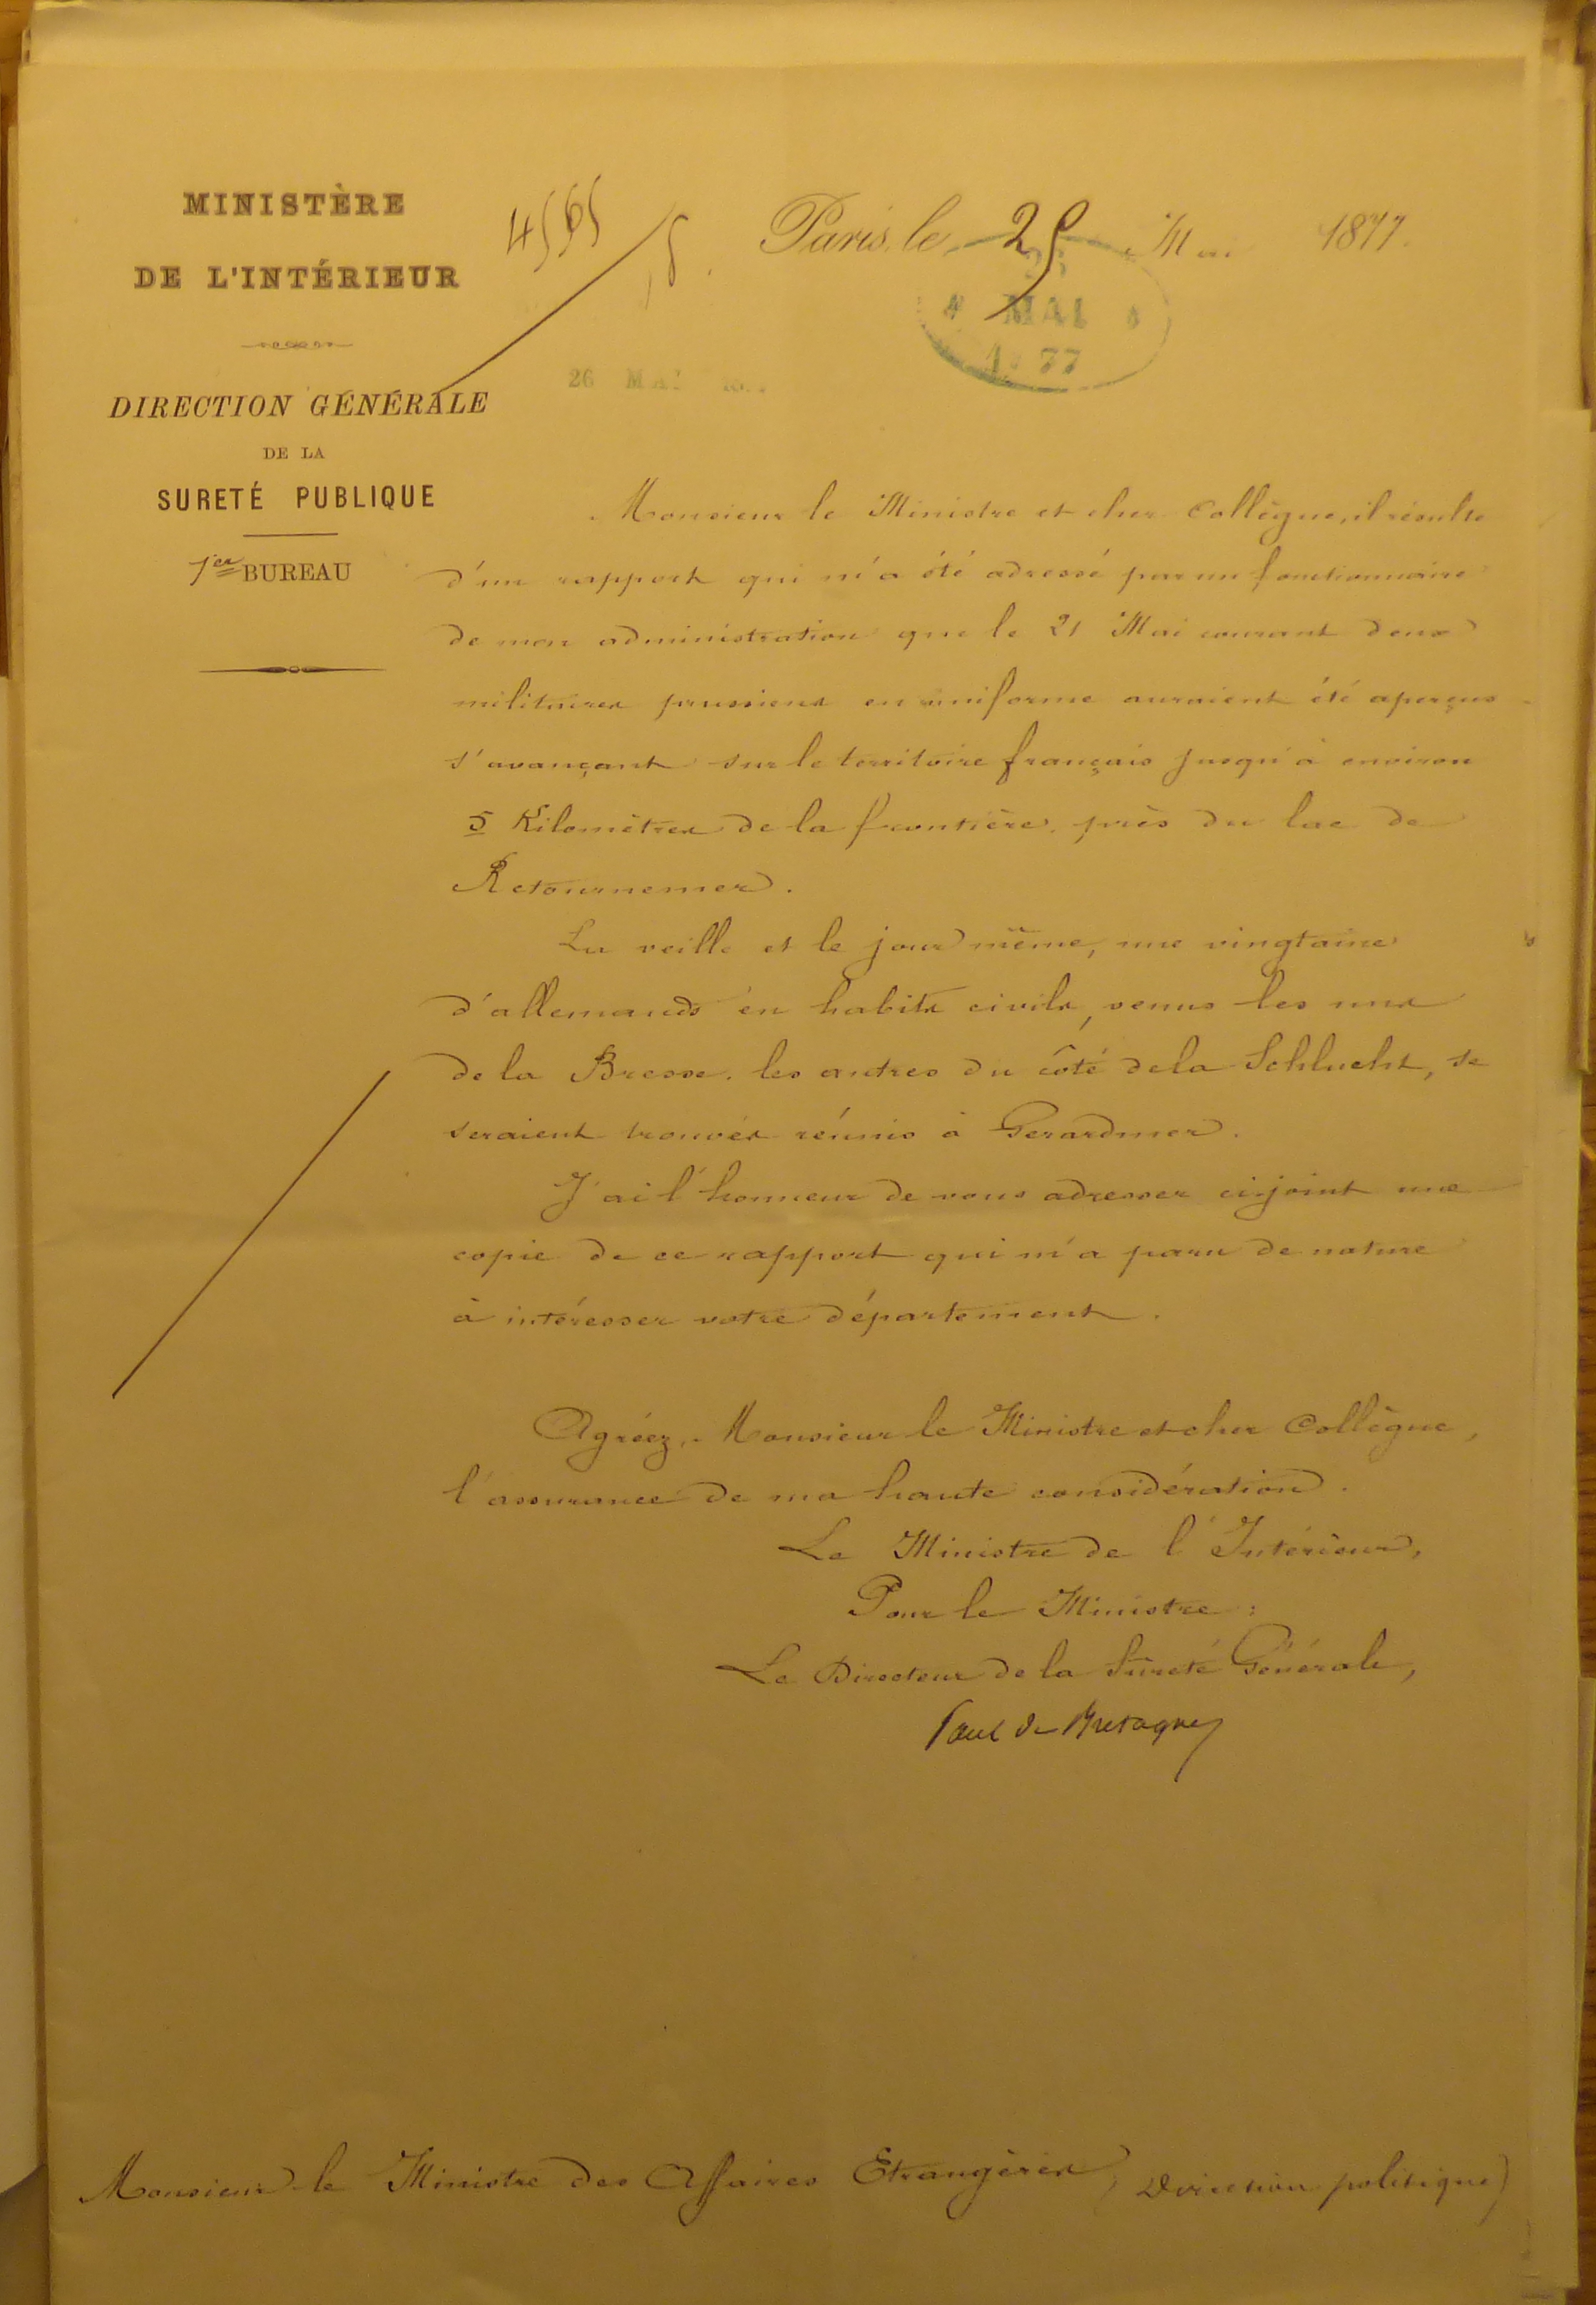 MINISTÈRE
DE L'INTÉRIEUR
DIRECTION GÉNÉRALE
DE LA
SURETÉ PUBLIQUE
1er BUREAU
4565
Paris, le 25 Mai 1877.
MAI
77
26 MAI
Monsieur le Ministre et cher Collègue, il résulte
d'un rapport qui m'a été adressé par un fonctionnaire
de mon administration que le 21 Mai courant deux
militaires prussiens en uniforme auraient été aperçus
s'avançant sur le territoire français jusqu'à environ
5 Kilomètres de la frontière, près du lac de
Retournemer.
La veille et le jour même, une vingtaine
d'allemands en habits civils, venus les uns
de la Bresse, les autres du côté de la Schlucht, se
seraient trouvés réunis à Gerardmer.
J'ai l'honneur de vous adresser ci-joint une
copie de ce rapport qui m'a paru de nature
à intéresser votre département.
Agréez, Monsieur le Ministre et cher Collègue,
l'assurance de ma haute considération.
Le Ministre de l'Intérieur,
Pour le Ministre:
Le Directeur de la Sûreté Générale,
Paul de Bretagne
Monsieur le Ministre des Affaires Etrangères (Direction politique)